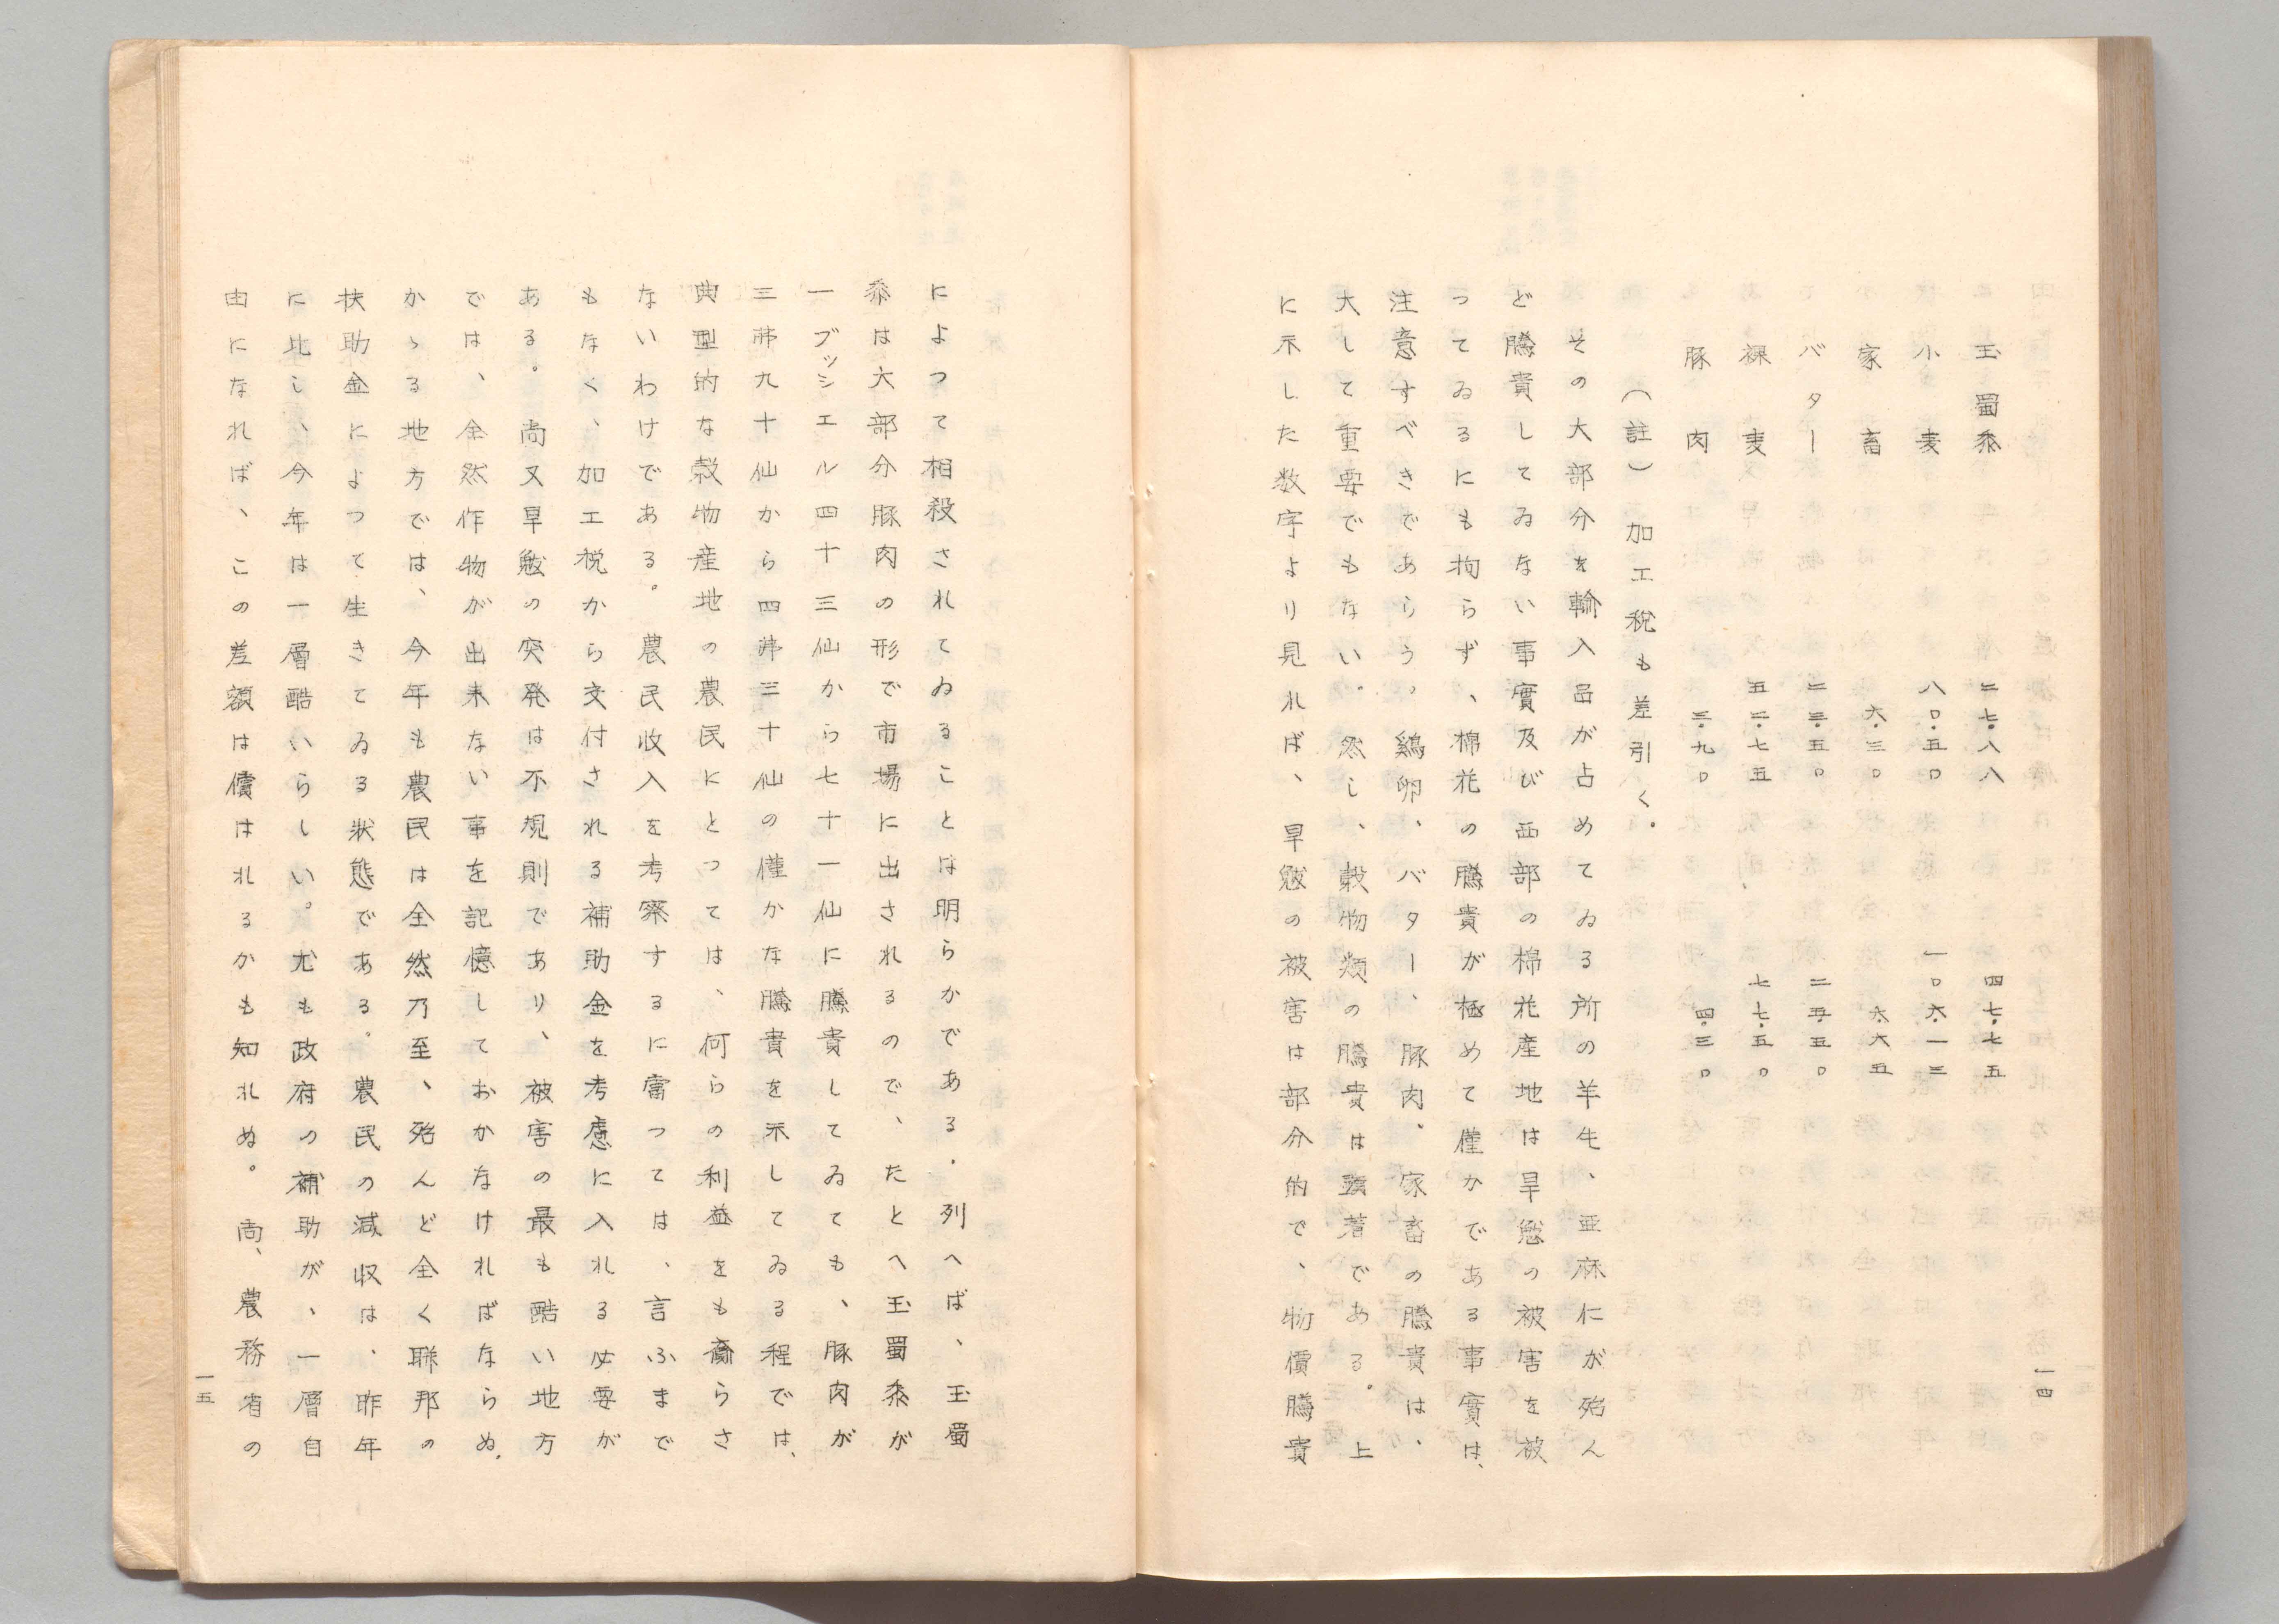 玉蜀黍 二七・八八 四七・七五
小麦 八〇・五〇 一〇六・一三
家畜 六・三〇 六・六五
バター 二三・五〇 二五・五〇
裸麦 五二・七五 七七・五〇
豚肉 三・九〇 四・三〇
(註) 加工税も差引く。
その大部分を輸入品が占めてゐる所の羊毛、亜麻にが殆ん
ど騰貴してゐない事實及び西部の棉花産地は旱魃の被害を被
つてゐるにも拘らず、棉花の騰貴が極めて僅かである事實は、
注意すべきであらう。鶏卵、バター、豚肉。家畜の騰貴は、
大して重要でもない。然し、穀物類の騰貴は顕著である。上
に示した数字より見れば、旱魃の被害は部分的で、物價騰貴
一四
によつて相殺されてゐることは明らかである。列へば、玉蜀
黍は大部分豚肉の形で市場に出されるので、たとへ玉蜀黍が
一ブッシエル四十三仙から七十一仙に騰貴してゐても、豚肉が
三弗九十仙から四弗三十仙の僅かな騰貴を示してゐる程では、
典型的な穀物産地の農民にとつては、何らの利益をも齎らさ
ないわけである。農民收入を考察するに當つては、言ふまで
もなく、加工税から交付される補助金を考慮に入れる必要が
ある。尚又旱魃の突発は不規則であり、被害の最も酷い地方
では、全然作物が出来ない事を記憶しておかなければならぬ。
かゝる地方では、今年も農民は全然乃至、殆んど全く聯邦の
扶助金によつて生きてゐる狀態である。農民の減収は、昨年
に比し、今年は一層酷いらしい。尤も政府の補助が、一層自
由になれば、この差額は償はれるかも知れぬ。尚、農務省の
一五